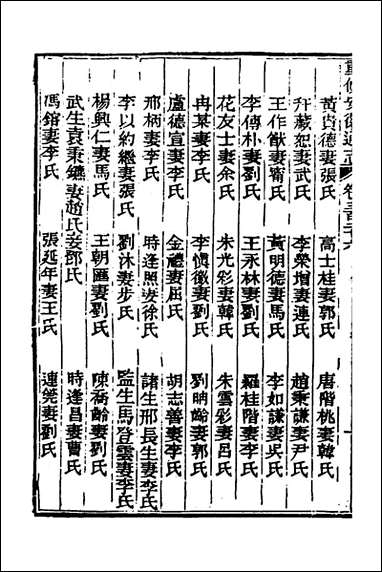 重修安徽通志 卷三百二十六
黃貢德妻張氏 高士桂妻郭氏 唐階桃妻韓氏
弁藏恕妻武氏 李榮增妻連氏 趙秉謙妻尹氏
王作猷妻甯氏 黃明德妻馬氏 李如謙妻吳氏
李傳朴妻劉氏 王永林妻劉氏 羅桂階妻李氏
花友士妻余氏 朱光彩妻韓氏 朱雲彩妻呂氏
冉某妻李氏 李慎徽妻劉氏 劉晌齡妻郭氏
盧德宣妻李氏 金禮妻屈氏 胡志善妻李氏
邢柄妻李氏 時逢照妻徐氏 諸生邢長生妻李氏
李以約繼妻張氏 劉沐妻步氏 監生馬登雲妻李氏
楊興仁妻馬氏 王朝匯妻劉氏 陳喬齡妻劉氏
武生袁秉繼妻趙氏妾鄧氏 時逢昌妻曹氏
馮錧妻李氏 張延年妻王氏 連堯妻劉氏